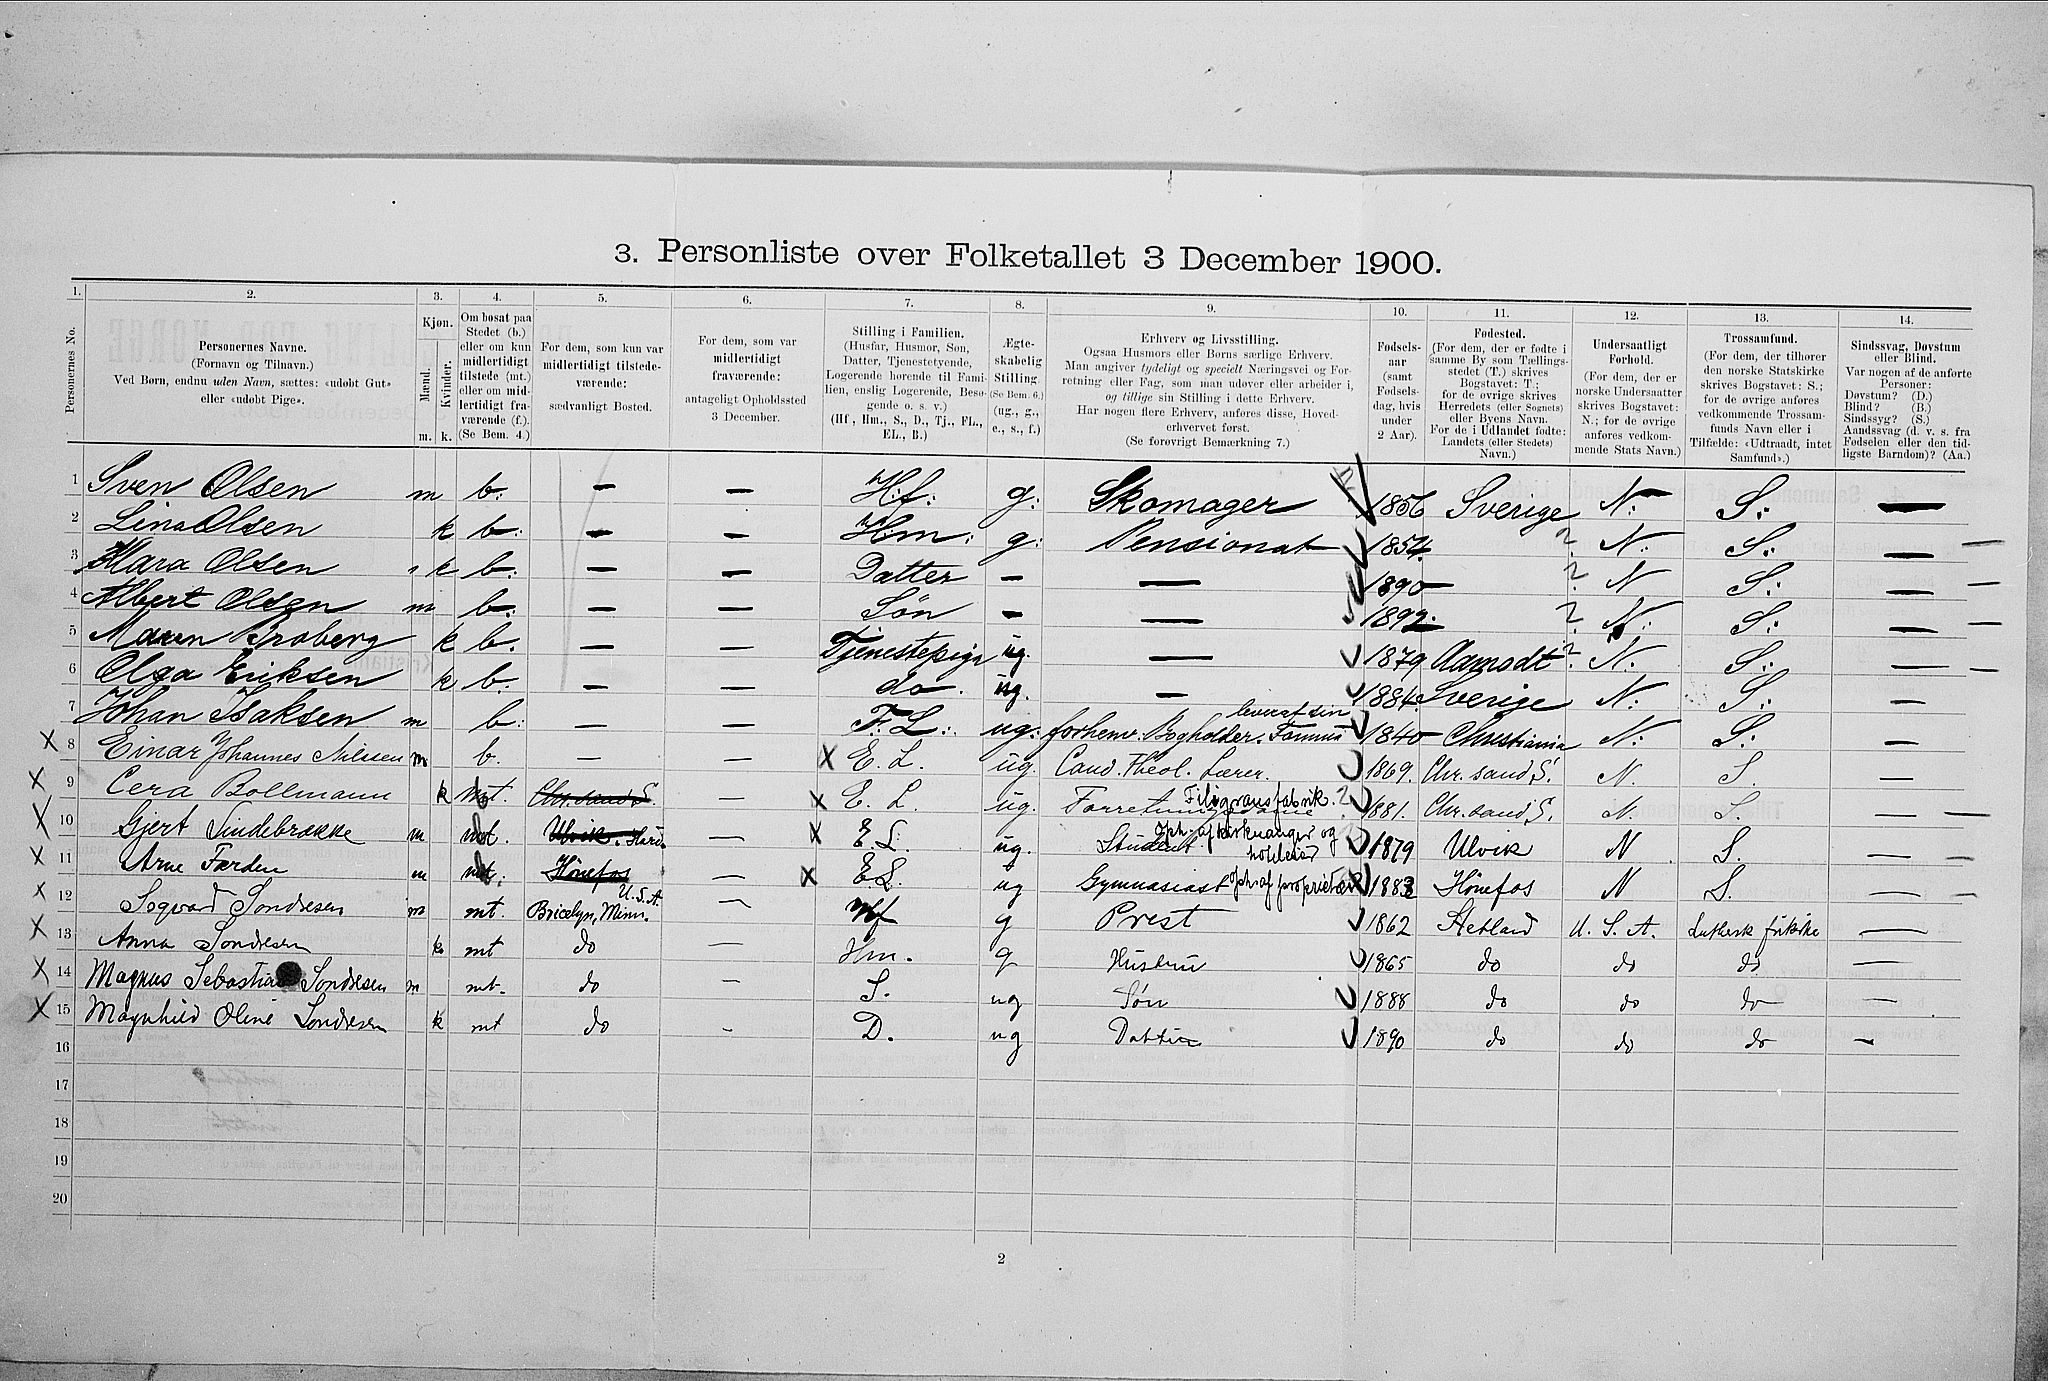 3. Personliste over Folketallet 3 December 1900.
1. 2. 3. 4. 5. 6. 7. 8. 9. 10. 11. 12. 13. 14.
Personernes No.
Personernes Navne.
(Fornavn og Tilnavn.)
Ved Børn, endnu uden Navn, sættes: «udøbt Gut»
eller «udøbt Pige».
Kjøn.
Mænd.
Kvinder.
m. k.
Om bosat paa
Stedet (b.)
eller om kun
midlertidigt
tilstede (mt.)
eller om mid-
lertidigt fra-
værende (f.).
(Se Bem. 4.)
For dem, som kun var
midlertidigt tilstede-
værende:
sædvanligt Bosted.
For dem, som var
midlertidigt
fraværende:
antageligt Opholdssted
3 December.
Stilling i Familien.
(Husfar, Husmor, Søn,
Datter, Tjenestetyende,
Logerende hørende til Fami-
lien, enslig Logerende, Besø-
gende o. s. v.)
(Hf., Hm., S., D., Tj., FL.,
EL., B.)
Ægte-
skabelig
Stilling.
(Se Bem. 6.)
(ug., g.,
e., s., f.)
Erhverv og Livsstilling.
Ogsaa Husmors eller Børns særlige Erhverv.
Man angiver tydeligt og specielt Næringsvei og For-
retning eller Fag, som man udøver eller arbeider i,
og tillige sin Stilling i dette Erhverv.
Har nogen flere Erhverv, anføres disse, Hoved-
erhvervet først.
(Se forøvrigt Bemærkning 7.)
Fødsels-
aar
(samt
Fødsels-
dag, hvis
under
2 Aar).
Fødested.
(For dem, der er fødte i
samme By som Tællings-
stedet (T.) skrives
Bogstavet: T.;
for de øvrige skrives
Herredets (eller Sognets)
eller Byens Navn.
For de i Udlandet fødte:
Landets (eller Stedets)
Navn.)
Undersaatligt
Forhold.
(For dem, der er
norske Undersaatter
skrives Bogstavet:
N.; for de øvrige
anføres vedkom-
mende Stats Navn.)
Trossamfund.
(For dem, der tilhører
den norske Statskirke
skrives Bogstavet: S.;
for de øvrige anføres
vedkommende Trossam-
funds Navn eller i
Tilfælde: «Udtraadt, intet
Samfund».)
Sindssvag, Døvstum
eller Blind.
Var nogen af de anførte
Personer:
Døvstum? (D.)
Blind? (B.)
Sindssyg? (S.)
Aandssvag (d. v. s. fra
Fødselen eller den tid-
ligste Barndom)? (Aa.)
1 Sven Olsen m b: — — H:f: g: Skomager 1856 Sverige N: S: —
2 Lina Olsen k b: — — Hm: g: Pensionat 1854. ? N: S: —
3 Mara Olsen k b: — — Datter — — 1890 ? N S: —
4 Albert Olsen m b: — — Søn — — 1892. ? N: S: —
5 Maren Broberg k b. — — Tjenestepige ug. — 1879 Aamodt ? N. S: —
6 Olga Eriksen k b: — — do. ug. — 1884. Sverige N: S: —
7 Johan Isaksen m b: — — F. L: ug: forhenv. Bogholder. 1840 Christiania N: S: —
X 8 Einar Johannes Nilssen m b. — — X E. L. ug. Cand. Theol. Lærer. 1869. Chr.sand S. N. S. —
X 9 Cera Bollmann k mt. Chr.sand S. — X E. L. ug. Filigransfabrik. ? 1881. Chr.sand S. N. S. —
X 10 Gjert Lindebrække m mt. Ulvik. Hard. — X E. L. ug. Student 1879 Ulvik N S. —
X 11 Arne Færden m mt. Hönefos — X E.L. ug Gymnasiast 1883 Hönefos N S. —
U.S.A
X 12 Sogvard Sondresen m mt. Bricelyn, Minn. — Hf g Prest 1862 Hetland U. S. A. Luthersk frikirke —
X 13 Anna Sondresen k mt do — Hm. g Hustru 1865 do do do —
X 14 Magnus Sebastian Sondresen m mt. do — S. ug Søn 1888 do do do —
X 15 Magnhild Oline Sondresen k mt do — D. ug Datter 1890 do do do —
16
17
18
19
20
2